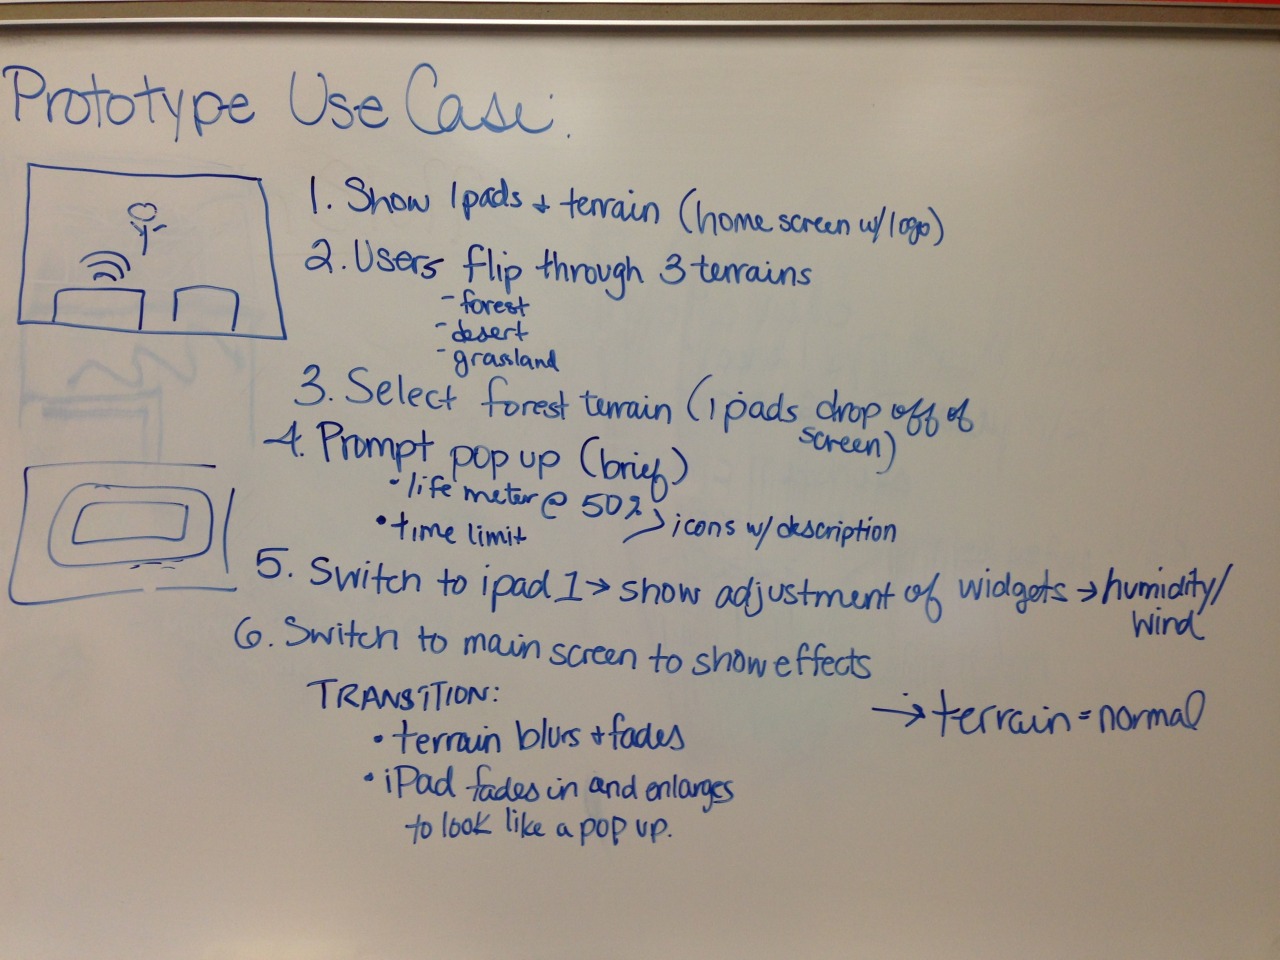 Prototype Use Case:
1. Show Ipads + terrain (home screen w/ logo)
2. Users flip through 3 terrains
- forest
- desert
- grassland
3. Select forest terrain (ipads drop off of
screen)
4. Prompt pop up (brief)
• life meter @ 50%
• time limit
> icons w/ description
5. Switch to ipad 1 → show adjustment of widgets → humidity/
wind
6. Switch to main screen to show effects
→ terrain = normal
TRANSITION:
• terrain blurs + fades
• iPad fades in and enlarges
to look like a pop up.